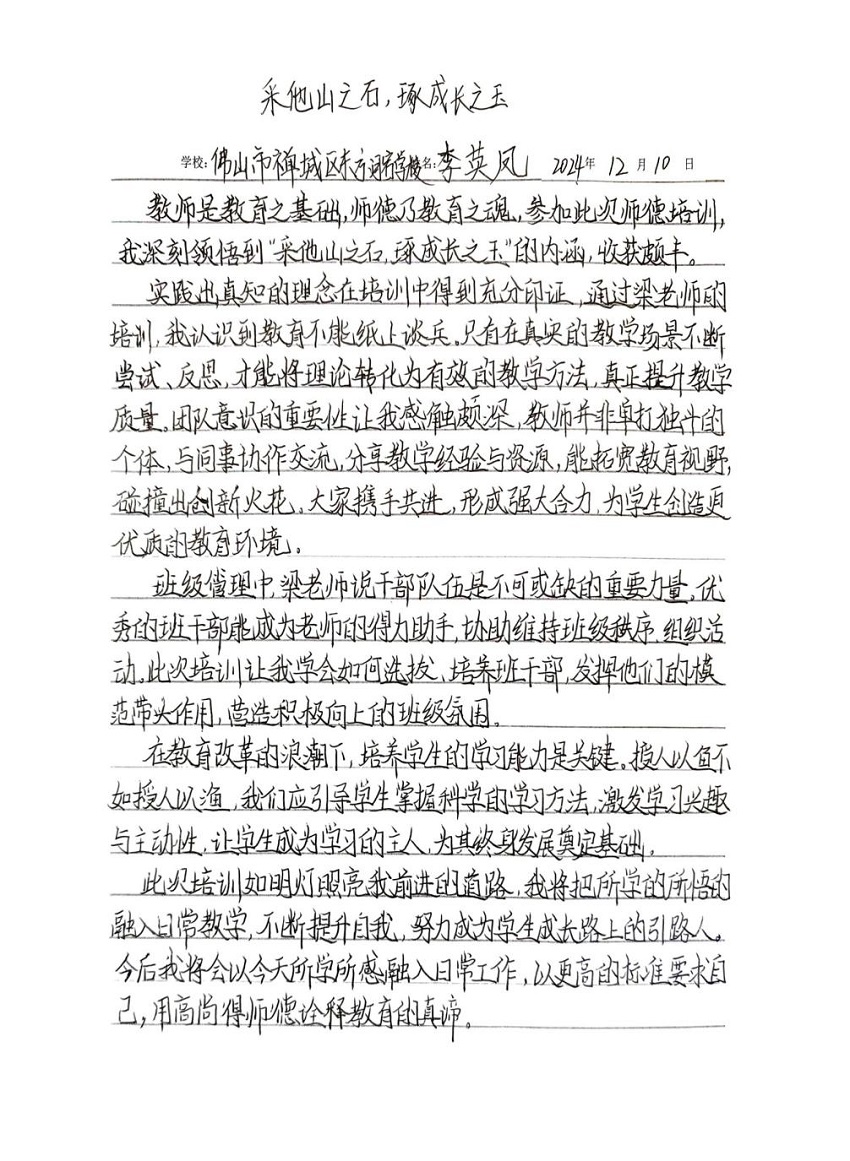 采他山之石，琢成长之玉
学校：佛山市禅城区东方 学校 名：李英凤 2024年 12月10日
教师是教育之基础，师德乃教育之魂，参加此次师德培训，
我深刻领悟到“采他山之石，琢成长之玉”的内涵，收获颇丰。
实践出真知的理念在培训中得到充分印证，通过梁老师的
培训，我认识到教育不能纸上谈兵。只有在真实的教学场景不断
尝试、反思，才能将理论转化为有效的教学方法，真正提升教学
质量。团队意识的重要性让我感触颇深，教师并非单打独斗的
个体，与同事协作交流，分享教学经验与资源，能拓宽教育视野，
碰撞出创新火花。大家携手共进，形成强大合力，为学生创造更
优质的教育环境。
班级管理中，梁老师说干部队伍是不可或缺的重要力量。优
秀的班干部能成为老师的得力助手，协助维持班级秩序，组织活
动。此次培训让我学会如何选拔、培养班干部，发挥他们的模
范带头作用，营造积极向上的班级氛围。
在教育改革的浪潮下，培养学生的学习能力是关键。授人以鱼不
如授人以渔，我们应引导学生掌握科学的学习方法，激发学习兴趣
与主动性，让学生成为学习的主人，为其终身发展奠定基础，
此次培训如明灯照亮我前进的道路，我将把所学的所悟的
融入日常教学，不断提升自我，努力成为学生成长路上的引路人。
今后我将会以今天所学所感融入日常工作，以更高的标准要求自
己，用高尚得师德诠释教育的真谛。